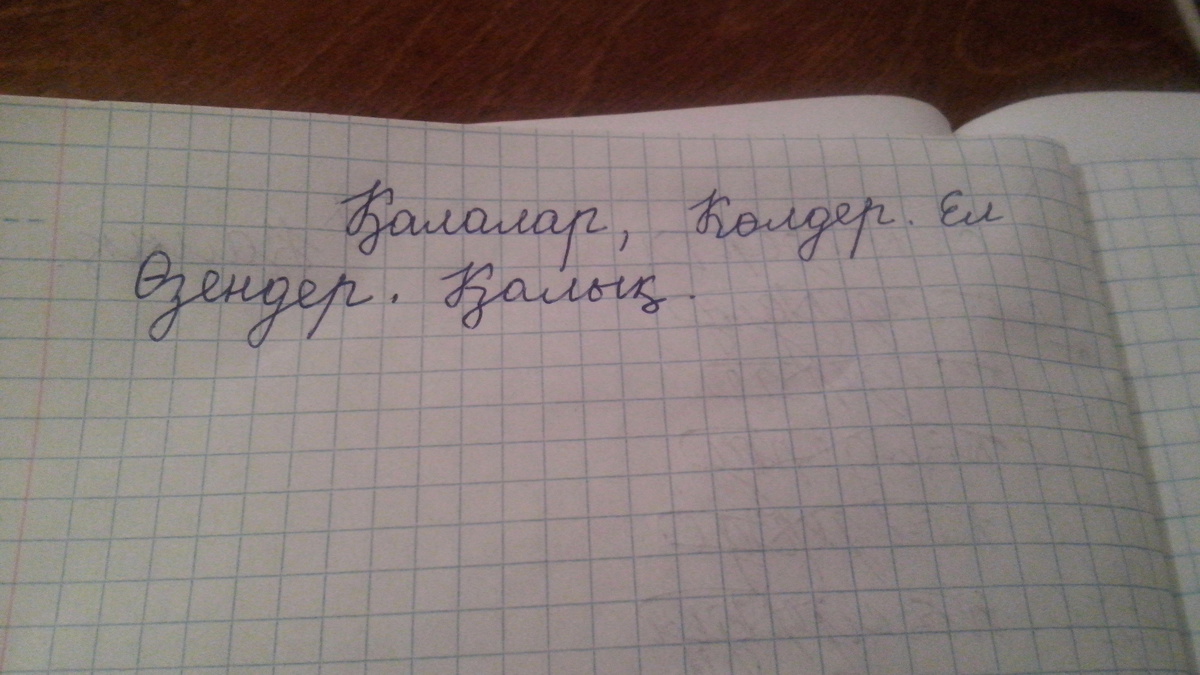 Қалалар, Көлдер. Ел
Өзендер. Қалық.